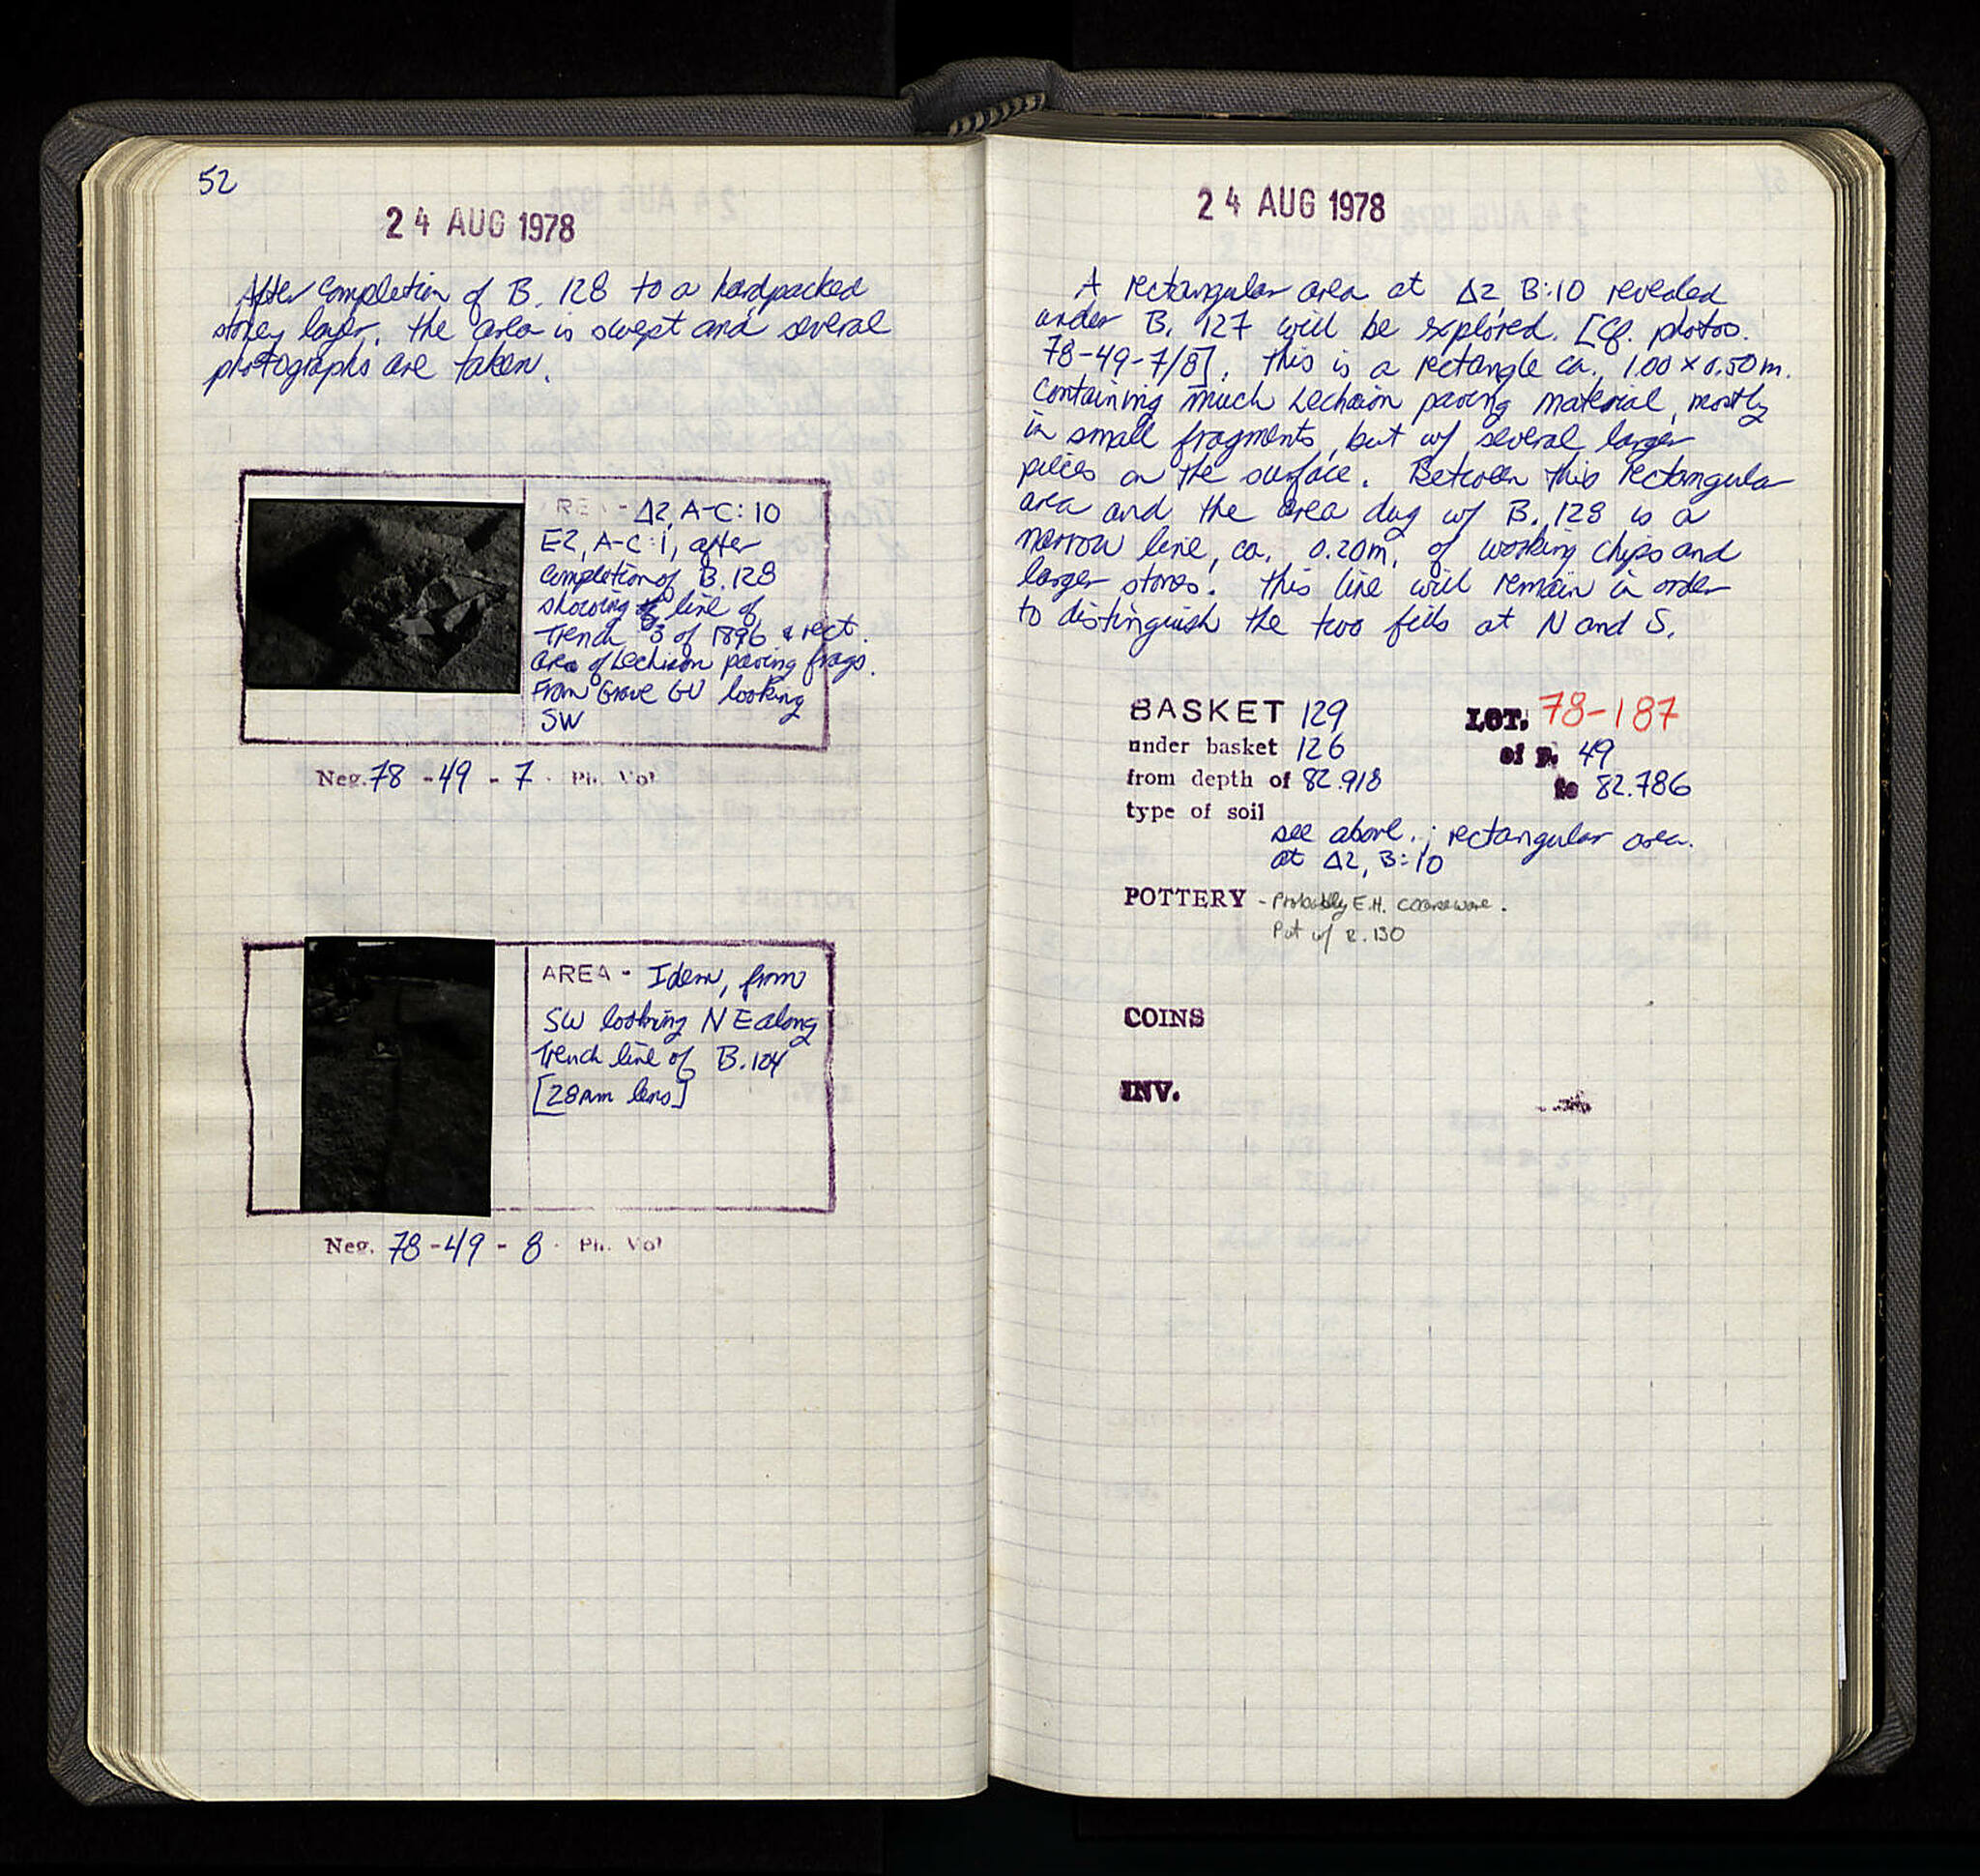 52
24 AUG 1978
After completion of B. 128 to a hardpacked
stoney layer, the area is swept and several
photographs are taken.
REA - Δ2, A-C:10
E2, A-C:1, after
completion of B.128
showing line of
Trench 3 of 1896 & rect.
area of Lechaion paving frags.
From Grave GU looking
SW
Neg. 78 - 49 - 7 · Ph. Vol
AREA - Idem, from
SW looking NE along
Trench line of B.124
[28mm lens]
Neg. 78 - 49 - 8 · Ph. Vol
24 AUG 1978
A rectangular area at Δ2 B:10 revealed
under B. 127 will be explored. [Cf. photos.
78-49-7/8]. This is a rectangle ca. 1.00 x 0.50m.
containing much Lechaion paving material, mostly
in small fragments, but w/ several larger
pieces on the surface. Between this rectangular
area and the area dug w/ B. 128 is a
narrow line, ca. 0.20m, of working chips and
larger stones. This line will remain in order
to distinguish the two fills at N and S.
BASKET 129 LOT. 78-187
under basket 126 of P. 49
from depth of 82.918 to 82.786
type of soil
see above. ; rectangular area.
at Δ2, B:10
POTTERY - Probably E.H. coarseware.
Put w/ B. 130
COINS
INV.